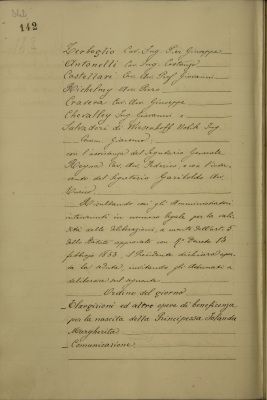 142
Zerboglio Cav. Ing. Pier Giuseppe
Antonelli Cav. Ing. Costanzo
Costellari Cav. Avv. Prof. Giovanni
Michelroy Avv. Piero
Crasera Cav. Avv. Giuseppe
Chevalley Ing. Giovanni e
Salvadori di Wiesenhoff Nobile Ing.
Comm. Giacomo
con l'assistenza del Segretario Generale
Cav. Avv. Federico, e con l'inter-
vento del Segretario Garibaldo Avv.
Risultando così gli Amministratori
intervenuti in numero legale per la vali-
dità delle deliberazioni, a mente dell'art. 5
dello Statuto approvato con R. Decreto 13
febbraio 1853 il Presidente dichiara aper-
ta la seduta, invitando gli Adunati a
deliberare sul seguente
Ordine del giorno
Elargizioni ed altre opere di beneficenza
per la nascita della Principessa Jolanda
Margherita
Comunicazione